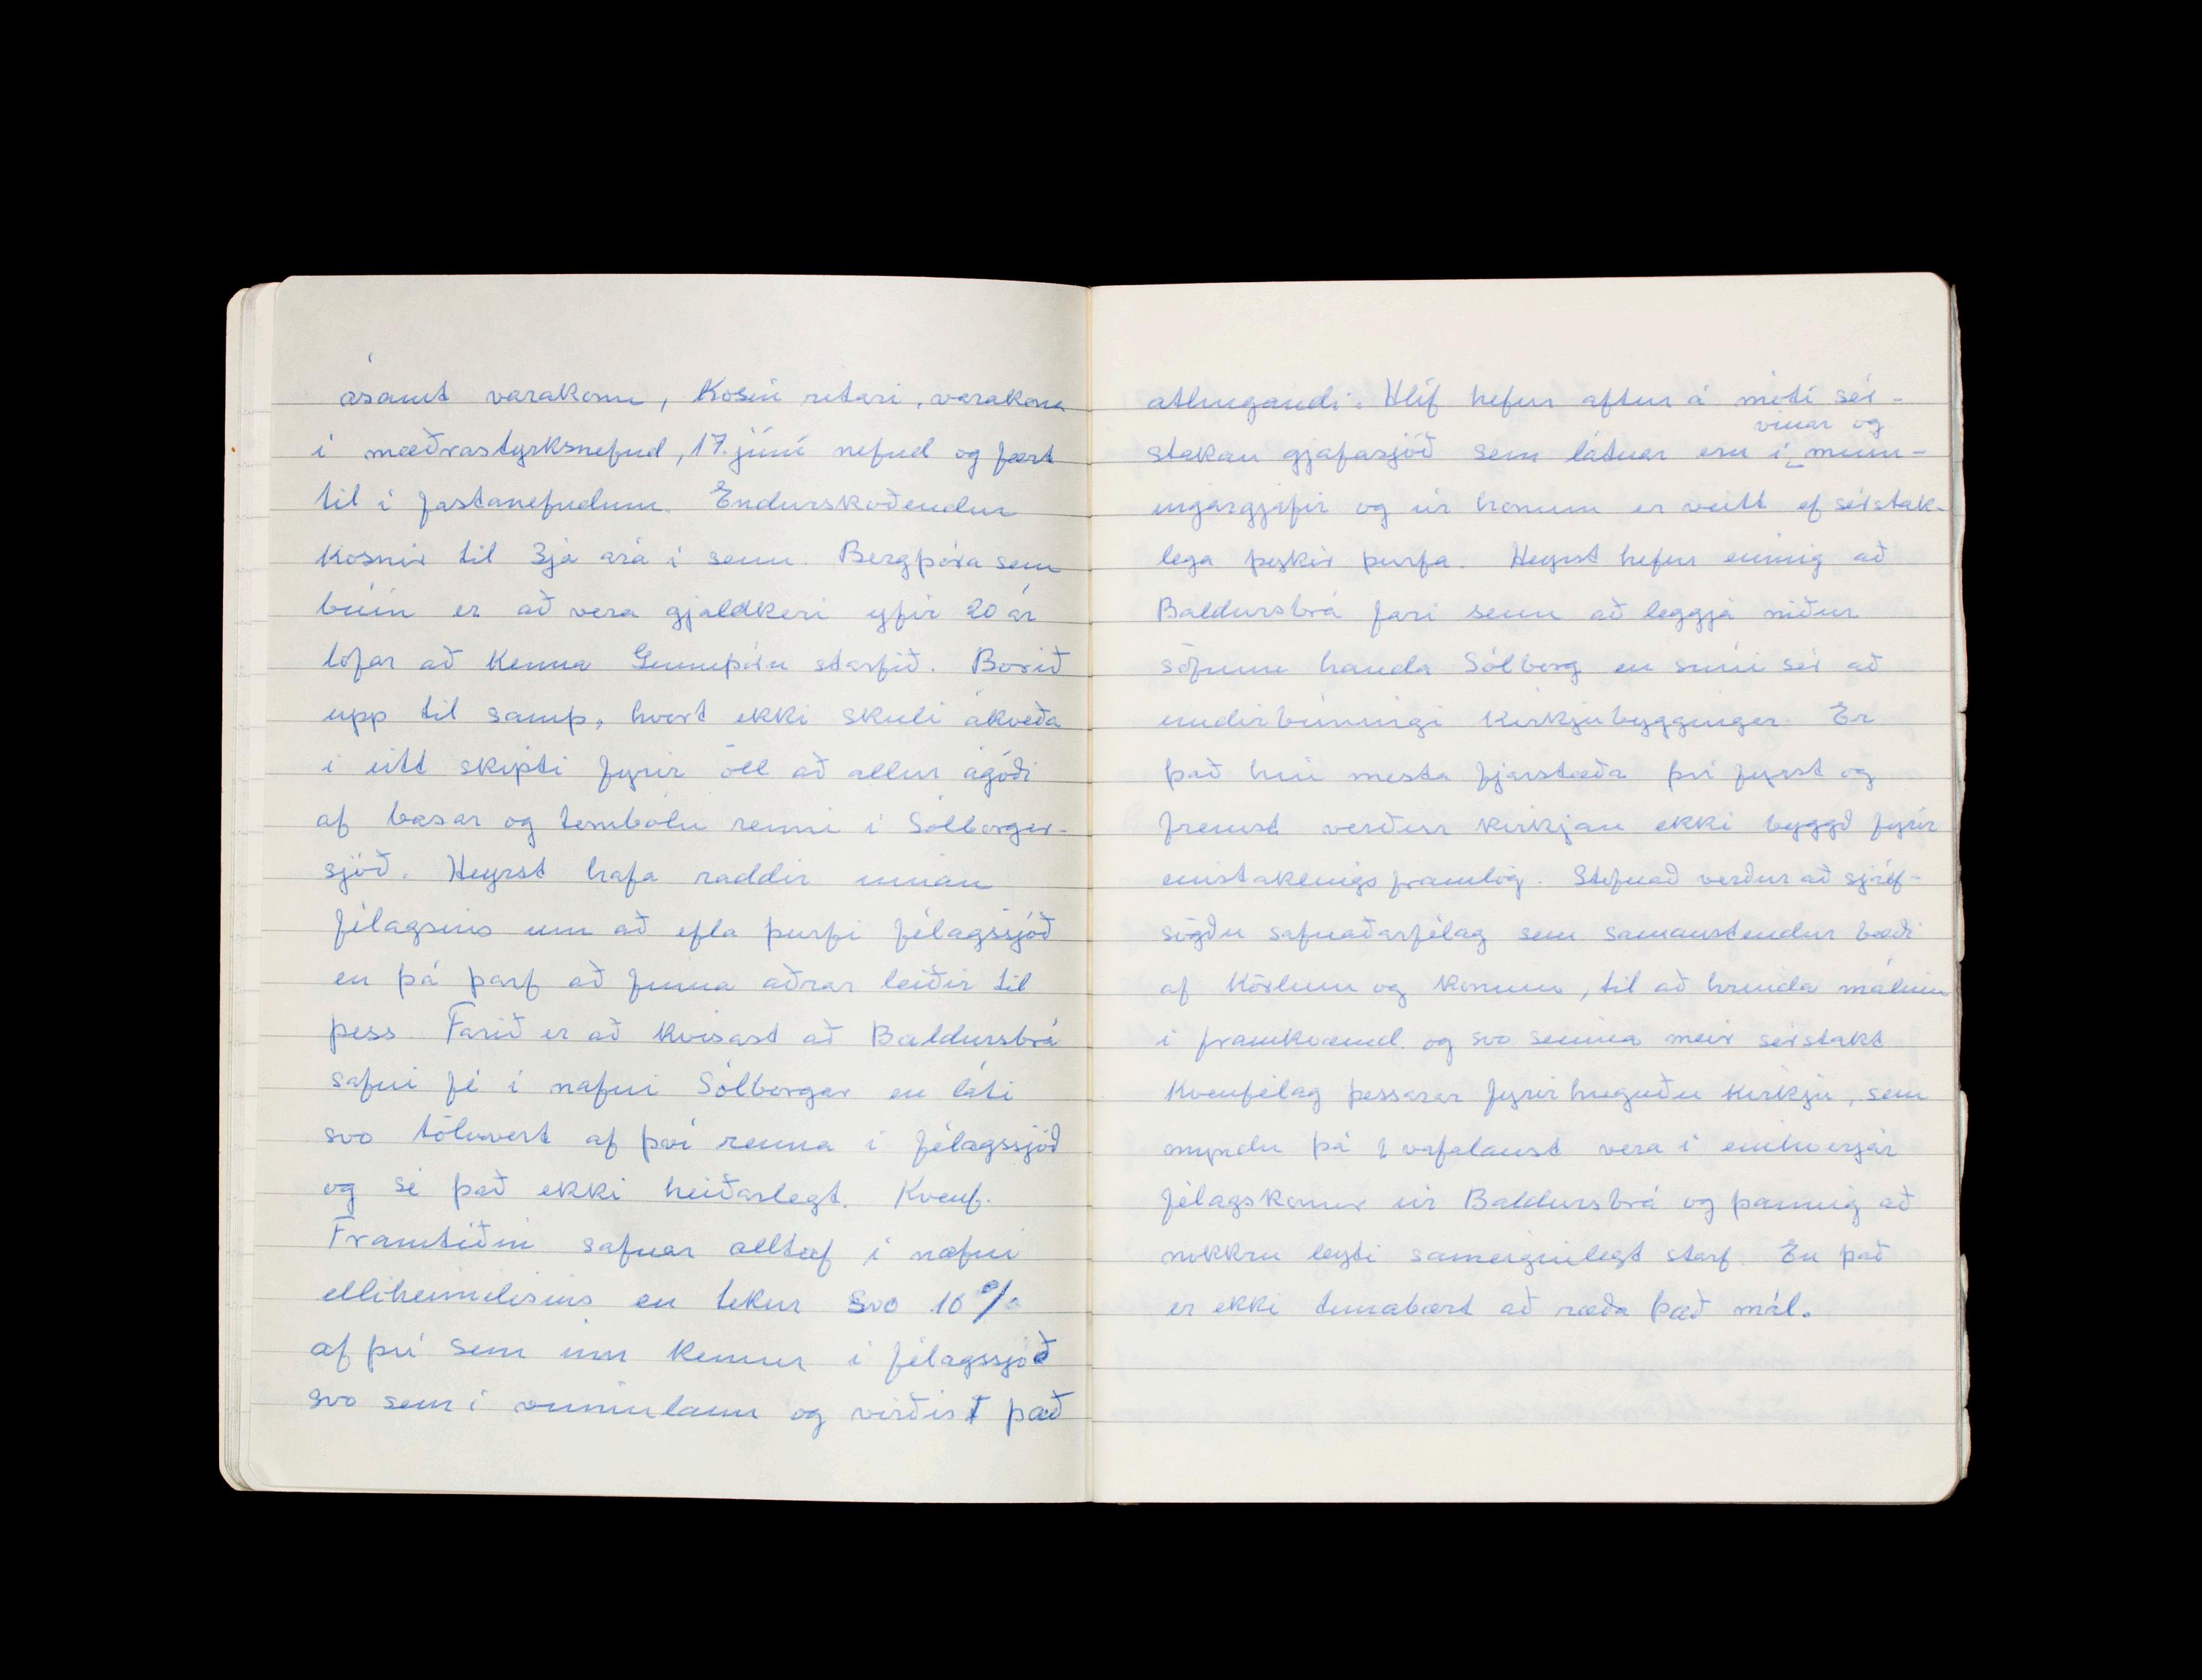 ásamt varakonu, Kosin ritari, varakona
í mæðrastyrksnefnd, 17. júní nefnd og fært
til í fastanefndum. Endurskoðendur
Kosnir til 3ja ára í senn. Bergþóra sem
búin er að vera gjaldkeri yfir 20 ár
lofar að Kenna Gunnþóru starfið. Borið
upp til samþ, hvort ekki skuli ákveða
í eitt skipti fyrir öll að allur ágóði
af basar og tombólu renni í Sólborgar-
sjóð. Heyrst hafa raddir innan
félagsins um að efla þurfi félagssjóð
en þá þarf að finna aðrar leiðir til
þess. Farið er að kvisast að Baldursbrá
safni fé í nafni Sólborgar en láti
svo töluvert af því renna í félagssjóð
og sé það ekki heiðarlegt. Kvenf.
Framtíðin safnar alltaf í nafni
elliheimilisins en tekur svo 10%
af því sem inn kemur í félagssjóð
svo sem í vinnulaun og virðist það
athugandi. Hlíf hefur aftur á móti sér-
vinar og
stakan gjafasjóð sem látnar eru í minn-
ingargjafir og úr honum er veitt ef sérstak-
lega þykir þurfa. Heyrst hefur einnig að
Baldursbrá fari senn að leggja niður
söfnun handa Sólborg en snúi sér að
undirbúningi Kirkjubyggingar. Er
það hin mesta fjarstæða því fyrst og
fremst verður kirkjan ekki byggð fyrir
einstaklingsframlög. Stefnað verður að sjálf-
sögðu safnaðarfélag sem samanstendur bæði
af Körlum og Konum, til að hrinda málinu
í framkvæmd og svo seinna meir sérstakt
Kvenfélag þessarar fyrirhuguðu Kirkju, sem
myndu þá vafalaust vera í einhverjar
félagskonur úr Baldursbrá og þannig að
nokkru leyti sameiginlegt starf. En það
er ekki tímabært að ræða það mál.